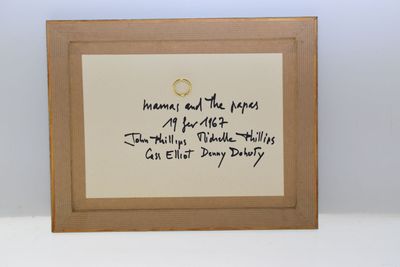 mamas and The papas
19 fev 1967
John Phillips Michelle Phillips
Cass Elliot Denny Doherty